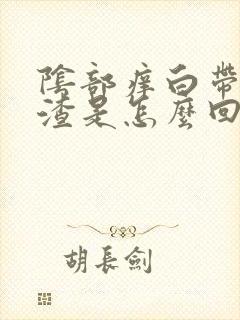 陰部痒白帶
渣是怎麽回
胡長劍